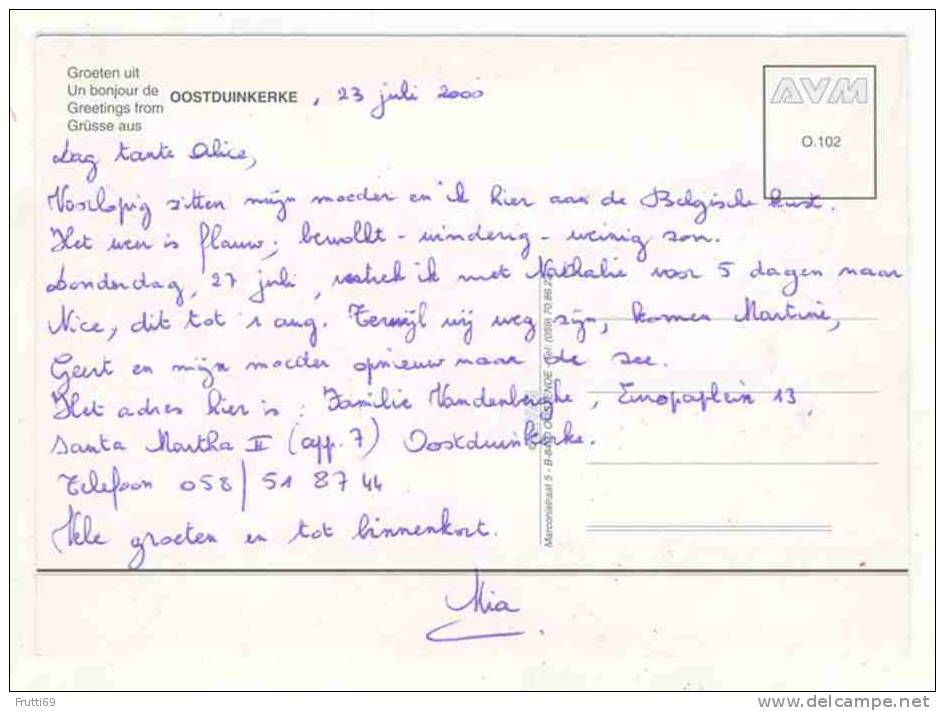 Groeten uit
Un bonjour de
Greetings from
Grüsse aus
OOSTDUINKERKE , 23 juli 2000
AVM
O.102
Dag tante Alice,
Voorlopig zitten mijn moeder en ik hier aan de Belgische kust.
Het weer is flauw; bewolkt - winderig - weinig zon.
Donderdag, 27 juli, vertrek ik met Nathalie voor 5 dagen naar
Nice, dit tot 1 aug. Terwijl wij weg zijn, komen Martine,
Geert en mijn moeder opnieuw naar de zee.
Het adres hier is : Familie Vandenberghe, Europaplein 13
Santa Martha II (app. 7) Oostduinkerke.
Telefoon 058/51 87 44
Vele groeten en tot binnenkort.
Mia
Marconistraat 5 - B-8400 OOSTENDE - Tel: (059) 70.86.2
Frutti69
www.delcampe.net